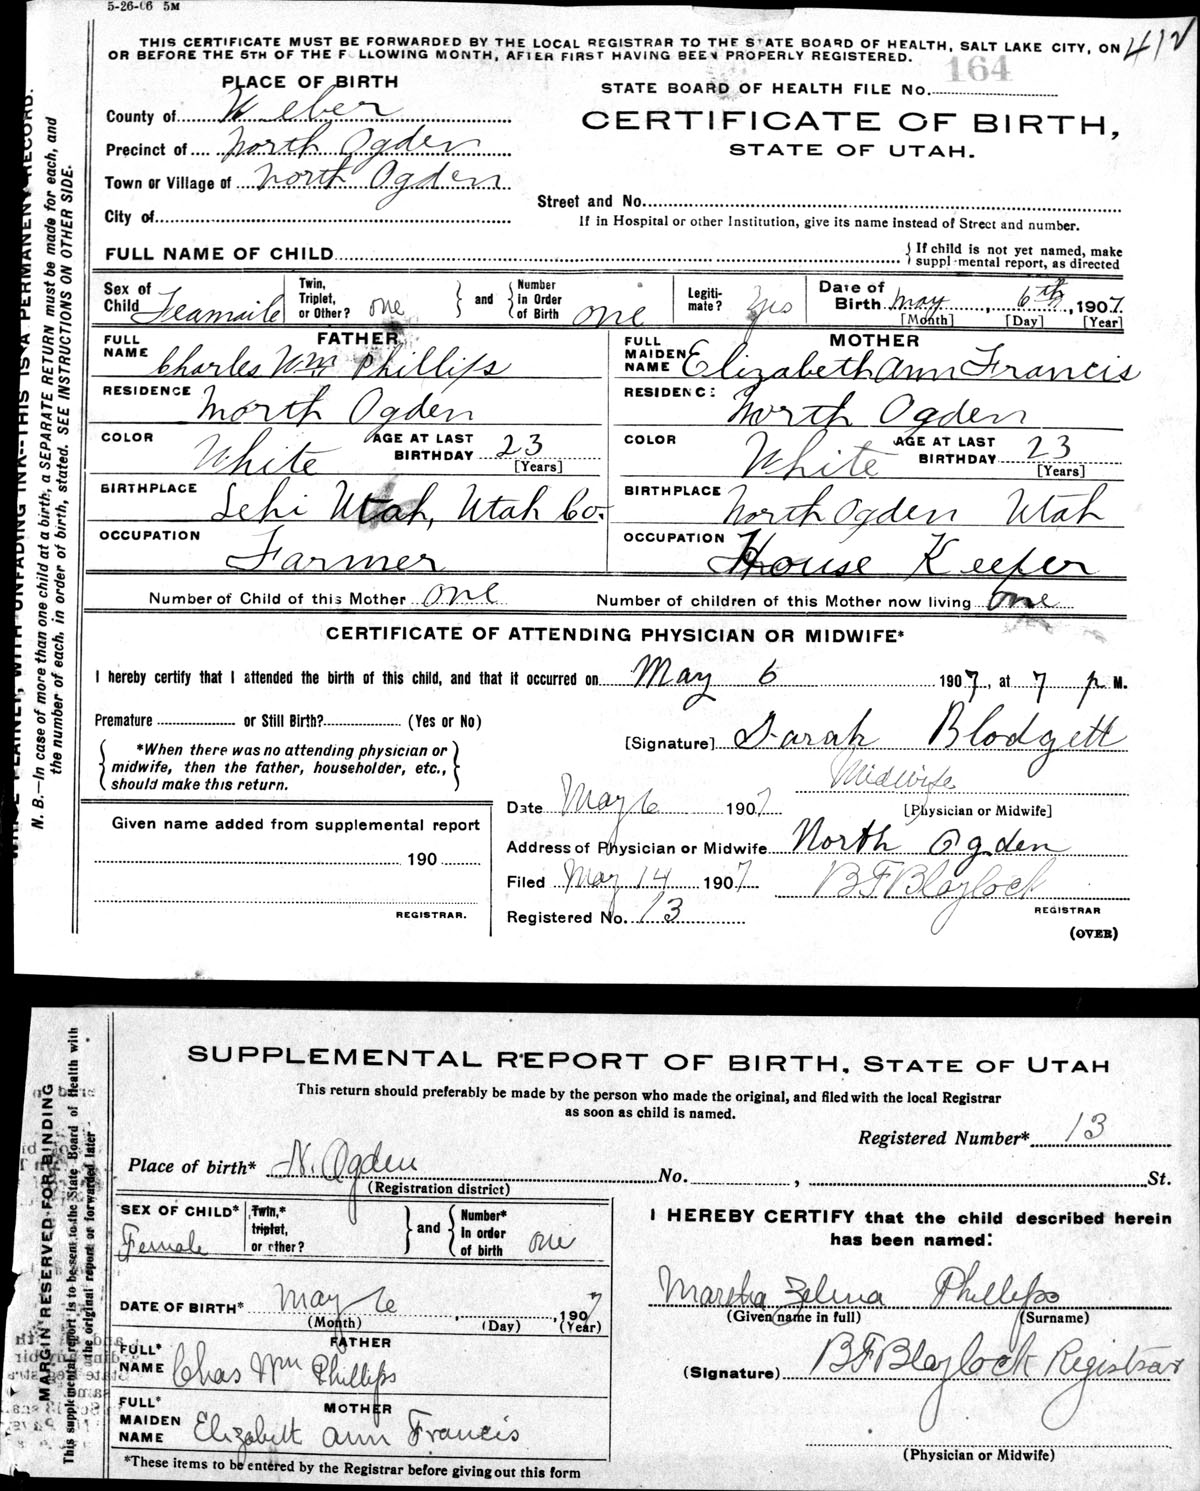 5-26-06 5M
THIS CERTIFICATE MUST BE FORWARDED BY THE LOCAL REGISTRAR TO THE STATE BOARD OF HEALTH, SALT LAKE CITY, ON
OR BEFORE THE 5TH OF THE F LLOWING MONTH, AFTER FIRST HAVING BEEN PROPERLY REGISTERED.
412
164
PLACE OF BIRTH
STATE BOARD OF HEALTH FILE No.
County of Weber
CERTIFICATE OF BIRTH,
Precinct of North Ogden
STATE OF UTAH.
Town or Village of North Ogden
Street and No.
City of
If in Hospital or other Institution, give its name instead of Street and number.
FULL NAME OF CHILD
{ If child is not yet named, make
suppl mental report, as directed
Sex of Child Feamaile
Twin, Triplet, or Other? one } and { Number in Order of Birth one
Legiti-mate? Yes
Date of Birth May 6th, 1907
[Month] [Day] [Year]
FATHER
FULL NAME Charles Wm Phillips
RESIDENCE North Ogden
COLOR White AGE AT LAST BIRTHDAY 23 [Years]
BIRTHPLACE Lehi Utah, Utah Co.
OCCUPATION Farmer
MOTHER
FULL MAIDEN NAME Elizabeth Ann Francis
RESIDENCE North Ogden
COLOR White AGE AT LAST BIRTHDAY 23 [Years]
BIRTHPLACE North Ogden Utah
OCCUPATION House Keeper
Number of Child of this Mother one Number of children of this Mother now living one
CERTIFICATE OF ATTENDING PHYSICIAN OR MIDWIFE*
I hereby certify that I attended the birth of this child, and that it occurred on May 6 1907, at 7 p M.
Premature or Still Birth? (Yes or No)
[Signature] Sarah Blodgett
{ *When there was no attending physician or
midwife, then the father, householder, etc.,
should make this return. }
Midwife
[Physician or Midwife]
Date May 6 1907
Given name added from supplemental report
190
REGISTRAR.
Address of Physician or Midwife North Ogden
Filed May 14 1907 BF Blaylock
REGISTRAR
Registered No. 13
(OVER)
PLAINLY, WITH UNFADING INK--THIS IS A PERMANENT RECORD.
N. B.—In case of more than one child at a birth, a SEPARATE RETURN must be made for each, and
the number of each, in order of birth, stated. SEE INSTRUCTIONS ON OTHER SIDE.
SUPPLEMENTAL REPORT OF BIRTH, STATE OF UTAH
This return should preferably be made by the person who made the original, and filed with the local Registrar
as soon as child is named.
Registered Number* 13
Place of birth* N. Ogden No. , St.
(Registration district)
SEX OF CHILD* Female
Twin,* triplet, or other? } and { Number* in order of birth one
DATE OF BIRTH* May 6, 1907
(Month) (Day) (Year)
FATHER
FULL* NAME Chas Wm Phillips
MOTHER
FULL* MAIDEN NAME Elizabett Ann Francis
*These items to be entered by the Registrar before giving out this form
I HEREBY CERTIFY that the child described herein
has been named:
Martha Zelma Phillips
(Given name in full) (Surname)
(Signature) BF Blaylock Registrar
(Physician or Midwife)
MARGIN RESERVED FOR BINDING
This supplemental report is to be sent to the State Board of Health with
the original report or forwarded later